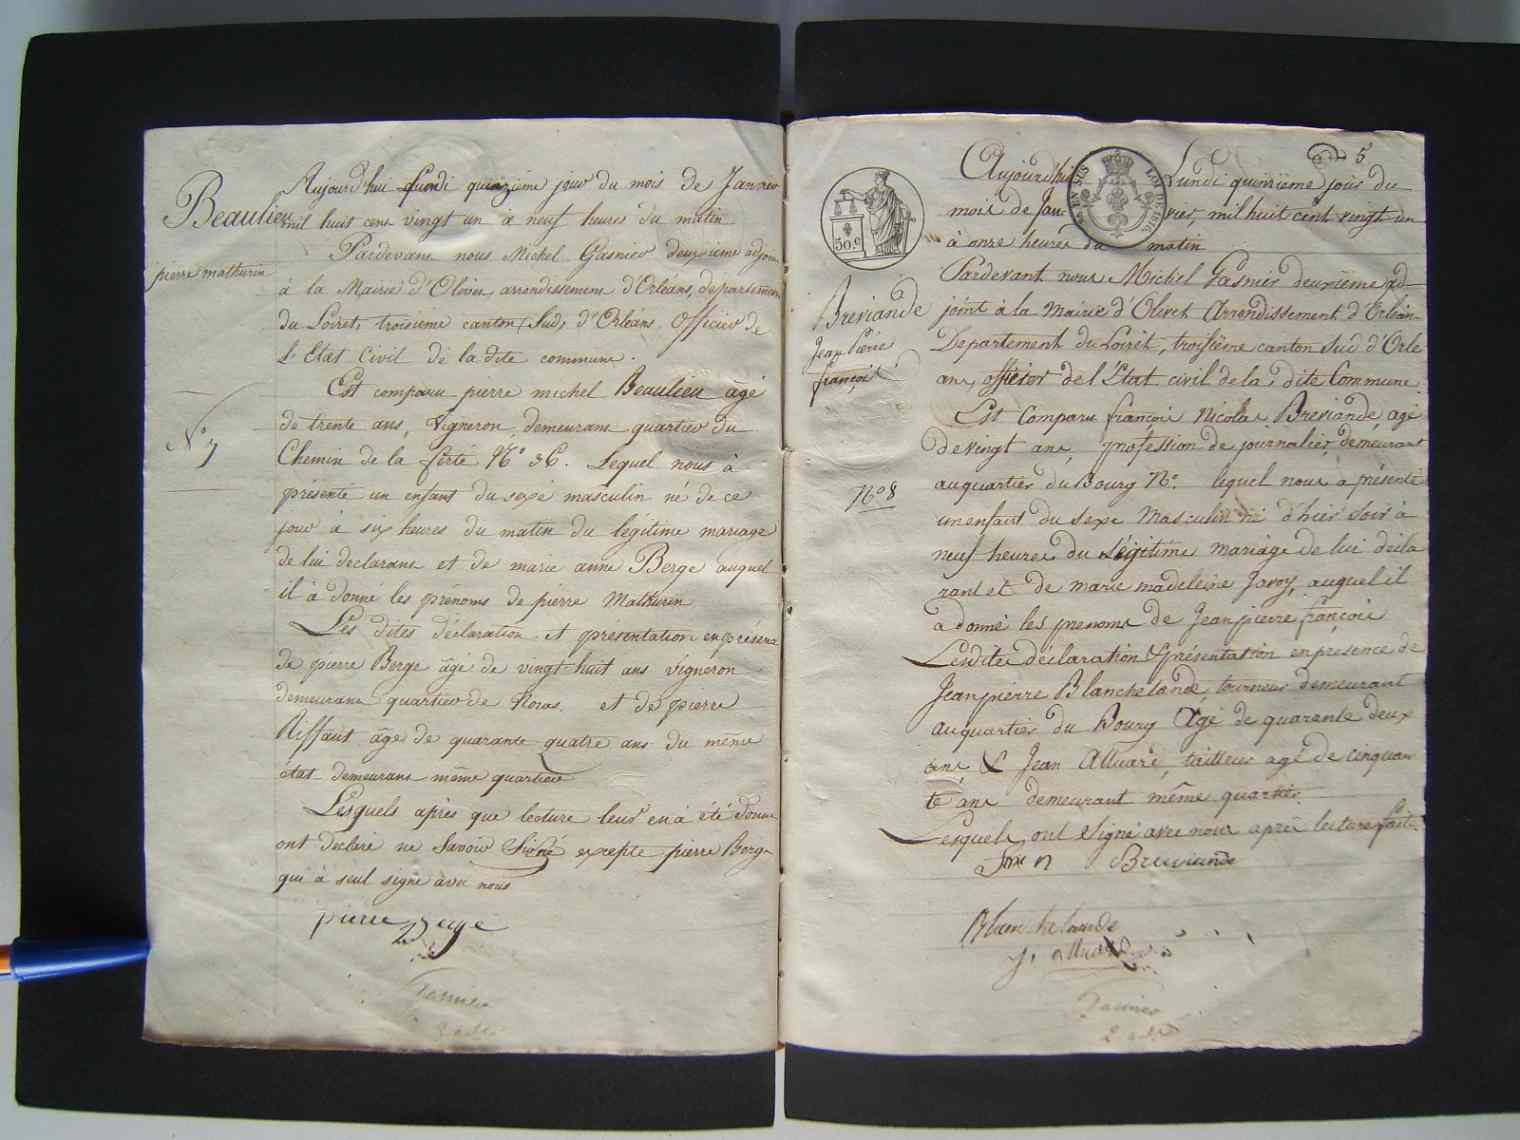 Beaulieu
pierre mathurin
N° 7
Aujourd'hui Lundi quinzième jour du mois de Janvier
mil huit cent vingt un à neuf heures du matin
Pardevant nous Michel Gasnier deuxieme adjoin
à la Mairie d'Olivet, arrondissement d'Orléans, département
du Loiret, troisieme canton Sud, d'Orléans. Officier de
L'Etat Civil de la dite commune.
Est comparu pierre michel Beaulieu âgé
de trente ans, Vigneron, demeurant quartier du
Chemin de la ferté N° 36. Lequel nous à
présenté un enfant du sexe masculin né de ce
jour à six heures du matin du légitime mariage
de lui declarant et de marie anne Berge auquel
il à donné les prénoms de pierre Mathurin
Les dites déclaration et présentation en présence
de pierre Berge âgé de vingt huit ans vigneron
demeurant quartier de Noras. et de pierre
Riffaut âge de quarante quatre ans du même
état demeurant même quartier
Lesquels après que lecture leur en à été donné
ont declaré ne Savoir Signé excepté pierre Berge
qui à seul signé avec nous
pierre Berge
Gasnier
2 adj

5
EN SUS
LOI DE 1816
50.c
Breviande
Jean Pierre
françois
N° 8
Aujourd'hui Lundi quinzième jour du
mois de Jan- vier, mil huit cent vingt un
à onze heures du matin
Pardevant nous Michel Gasnier deuxième ad-
joint à la Mairie d'Olivet Arrondissement d'Orléan-
Departement du Loiret, troisième canton Sud d'Orle
ans, officier de l'Etat civil de la dite Commune
Est Comparu françois Nicolas Breviande agé
de vingt ans, profession de journalier, demeurant
au quartier du Bourg N°. lequel nous a présenté
un enfant du Sexe Masculin né d'hier Soir à
neuf heures du Légitime mariage de lui décla
rant et de marie madeleine Javoy, auquel il
a donné les prenoms de Jean pierre françois
Lesdites déclaration & présentation en presence de
Jean pierre Blanchelande, tourneur demeurant
au quartier du Bourg Agé de quarante deux
ans & Jean Alluard, tailleur agé de cinquan
te ans demeurant même quartier
Lesquels, ont Signé avec nous après lecture fait
Breviande
Blanchelande
J. alluard
Gasnier
2 adj